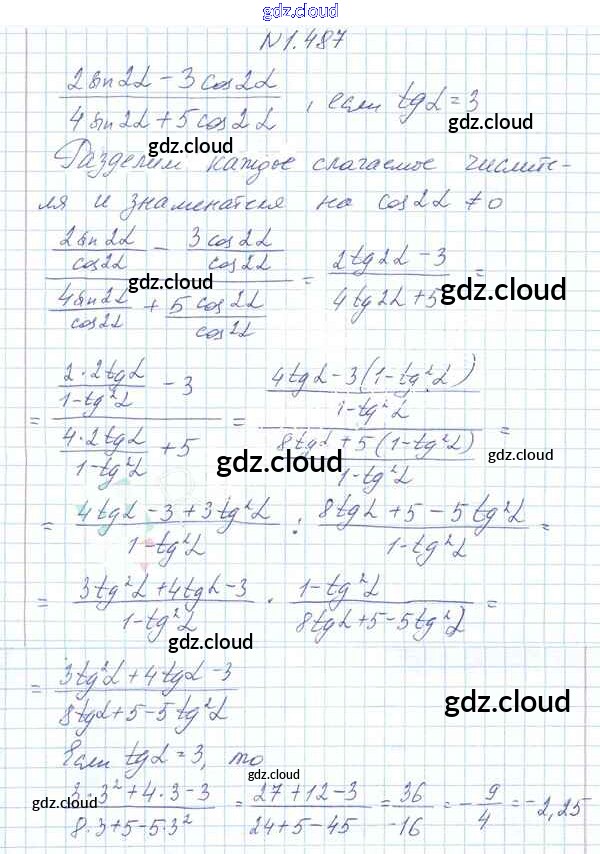 gdz.cloud
N1.487
(2sin2α − 3cos2α)/(4sin2α + 5cos2α), если tgα = 3
gdz.cloud
gdz.cloud
Разделим каждое слагаемое числите-
ля и знаменателя на cos2α ≠ 0
((2sin2α)/(cos2α) − (3cos2α)/(cos2α))/((4sin2α)/(cos2α) + (5cos2α)/(cos2α)) = (2tg2α − 3)/(4tg2α + 5) =
gdz.cloud
gdz.cloud
gdz.cloud
= ((2·2tgα)/(1−tg²α) − 3)/((4·2tgα)/(1−tg²α) + 5) = ((4tgα − 3(1−tg²α))/(1−tg²α))/((8tgα + 5(1−tg²α))/(1−tg²α)) =
gdz.cloud
gdz.cloud
= (4tgα − 3 + 3tg²α)/(1−tg²α) : (8tgα + 5 − 5tg²α)/(1−tg²α) =
= (3tg²α + 4tgα − 3)/(1−tg²α) · (1−tg²α)/(8tgα + 5 − 5tg²α) =
gdz.cloud
gdz.cloud
= (3tg²α + 4tgα − 3)/(8tgα + 5 − 5tg²α)
gdz.cloud
Если tgα = 3, то
gdz.cloud
(3·3² + 4·3 − 3)/(8·3 + 5 − 5·3²) = (27 + 12 − 3)/(24 + 5 − 45) = 36/−16 = −9/4 = −2,25
gdz.cloud
gdz.cloud